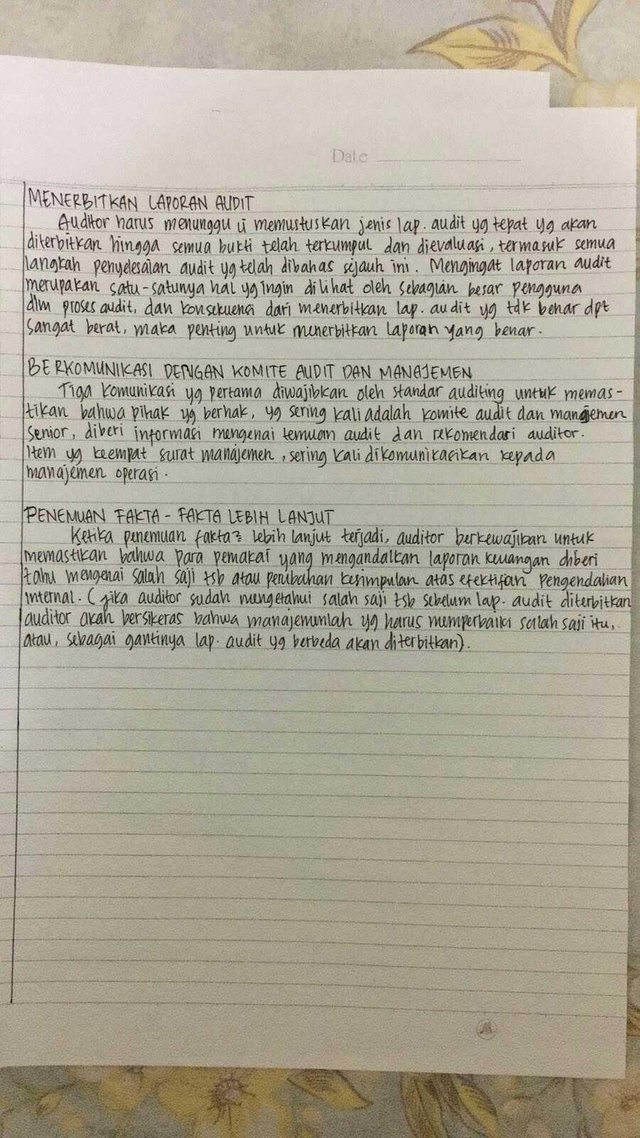 Date
MENERBITKAN LAPORAN AUDIT
Auditor harus menunggu u memustuskan jenis lap. audit yg tepat yg akan
diterbitkan hingga semua bukti telah terkumpul dan dievaluasi, termasuk semua
langkah penyelesaian audit yg telah dibahas sejauh ini. Mengingat laporan audit
merupakan satu-satunya hal yg ingin dilihat oleh sebagian besar pengguna
dlm proses audit, dan konsekuensi dari menerbitkan lap. audit yg tdk benar dpt
sangat berat, maka penting untuk menerbitkan laporan yang benar.
BERKOMUNIKASI DENGAN KOMITE AUDIT DAN MANAJEMEN
Tiga komunikasi yg pertama diwajibkan oleh standar auditing untuk memas-
tikan bahwa pihak yg berhak, yg sering kali adalah komite audit dan manajemen
senior, diberi informasi mengenai temuan audit dan rekomendasi auditor.
Item yg keempat surat manajemen, sering kali dikomunikasikan kepada
manajemen operasi.
PENEMUAN FAKTA-FAKTA LEBIH LANJUT
Ketika penemuan fakta² lebih lanjut terjadi, auditor berkewajiban untuk
memastikan bahwa para pemakai yang mengandalkan laporan keuangan diberi
tahu mengenai salah saji tsb atau perubahan kesimpulan atas efektifan pengendalian
internal. (jika auditor sudah mengetahui salah saji tsb sebelum lap. audit diterbitkan
auditor akan bersikeras bahwa manajemenlah yg harus memperbaiki salah saji itu,
atau, sebagai gantinya lap. audit yg berbeda akan diterbitkan).